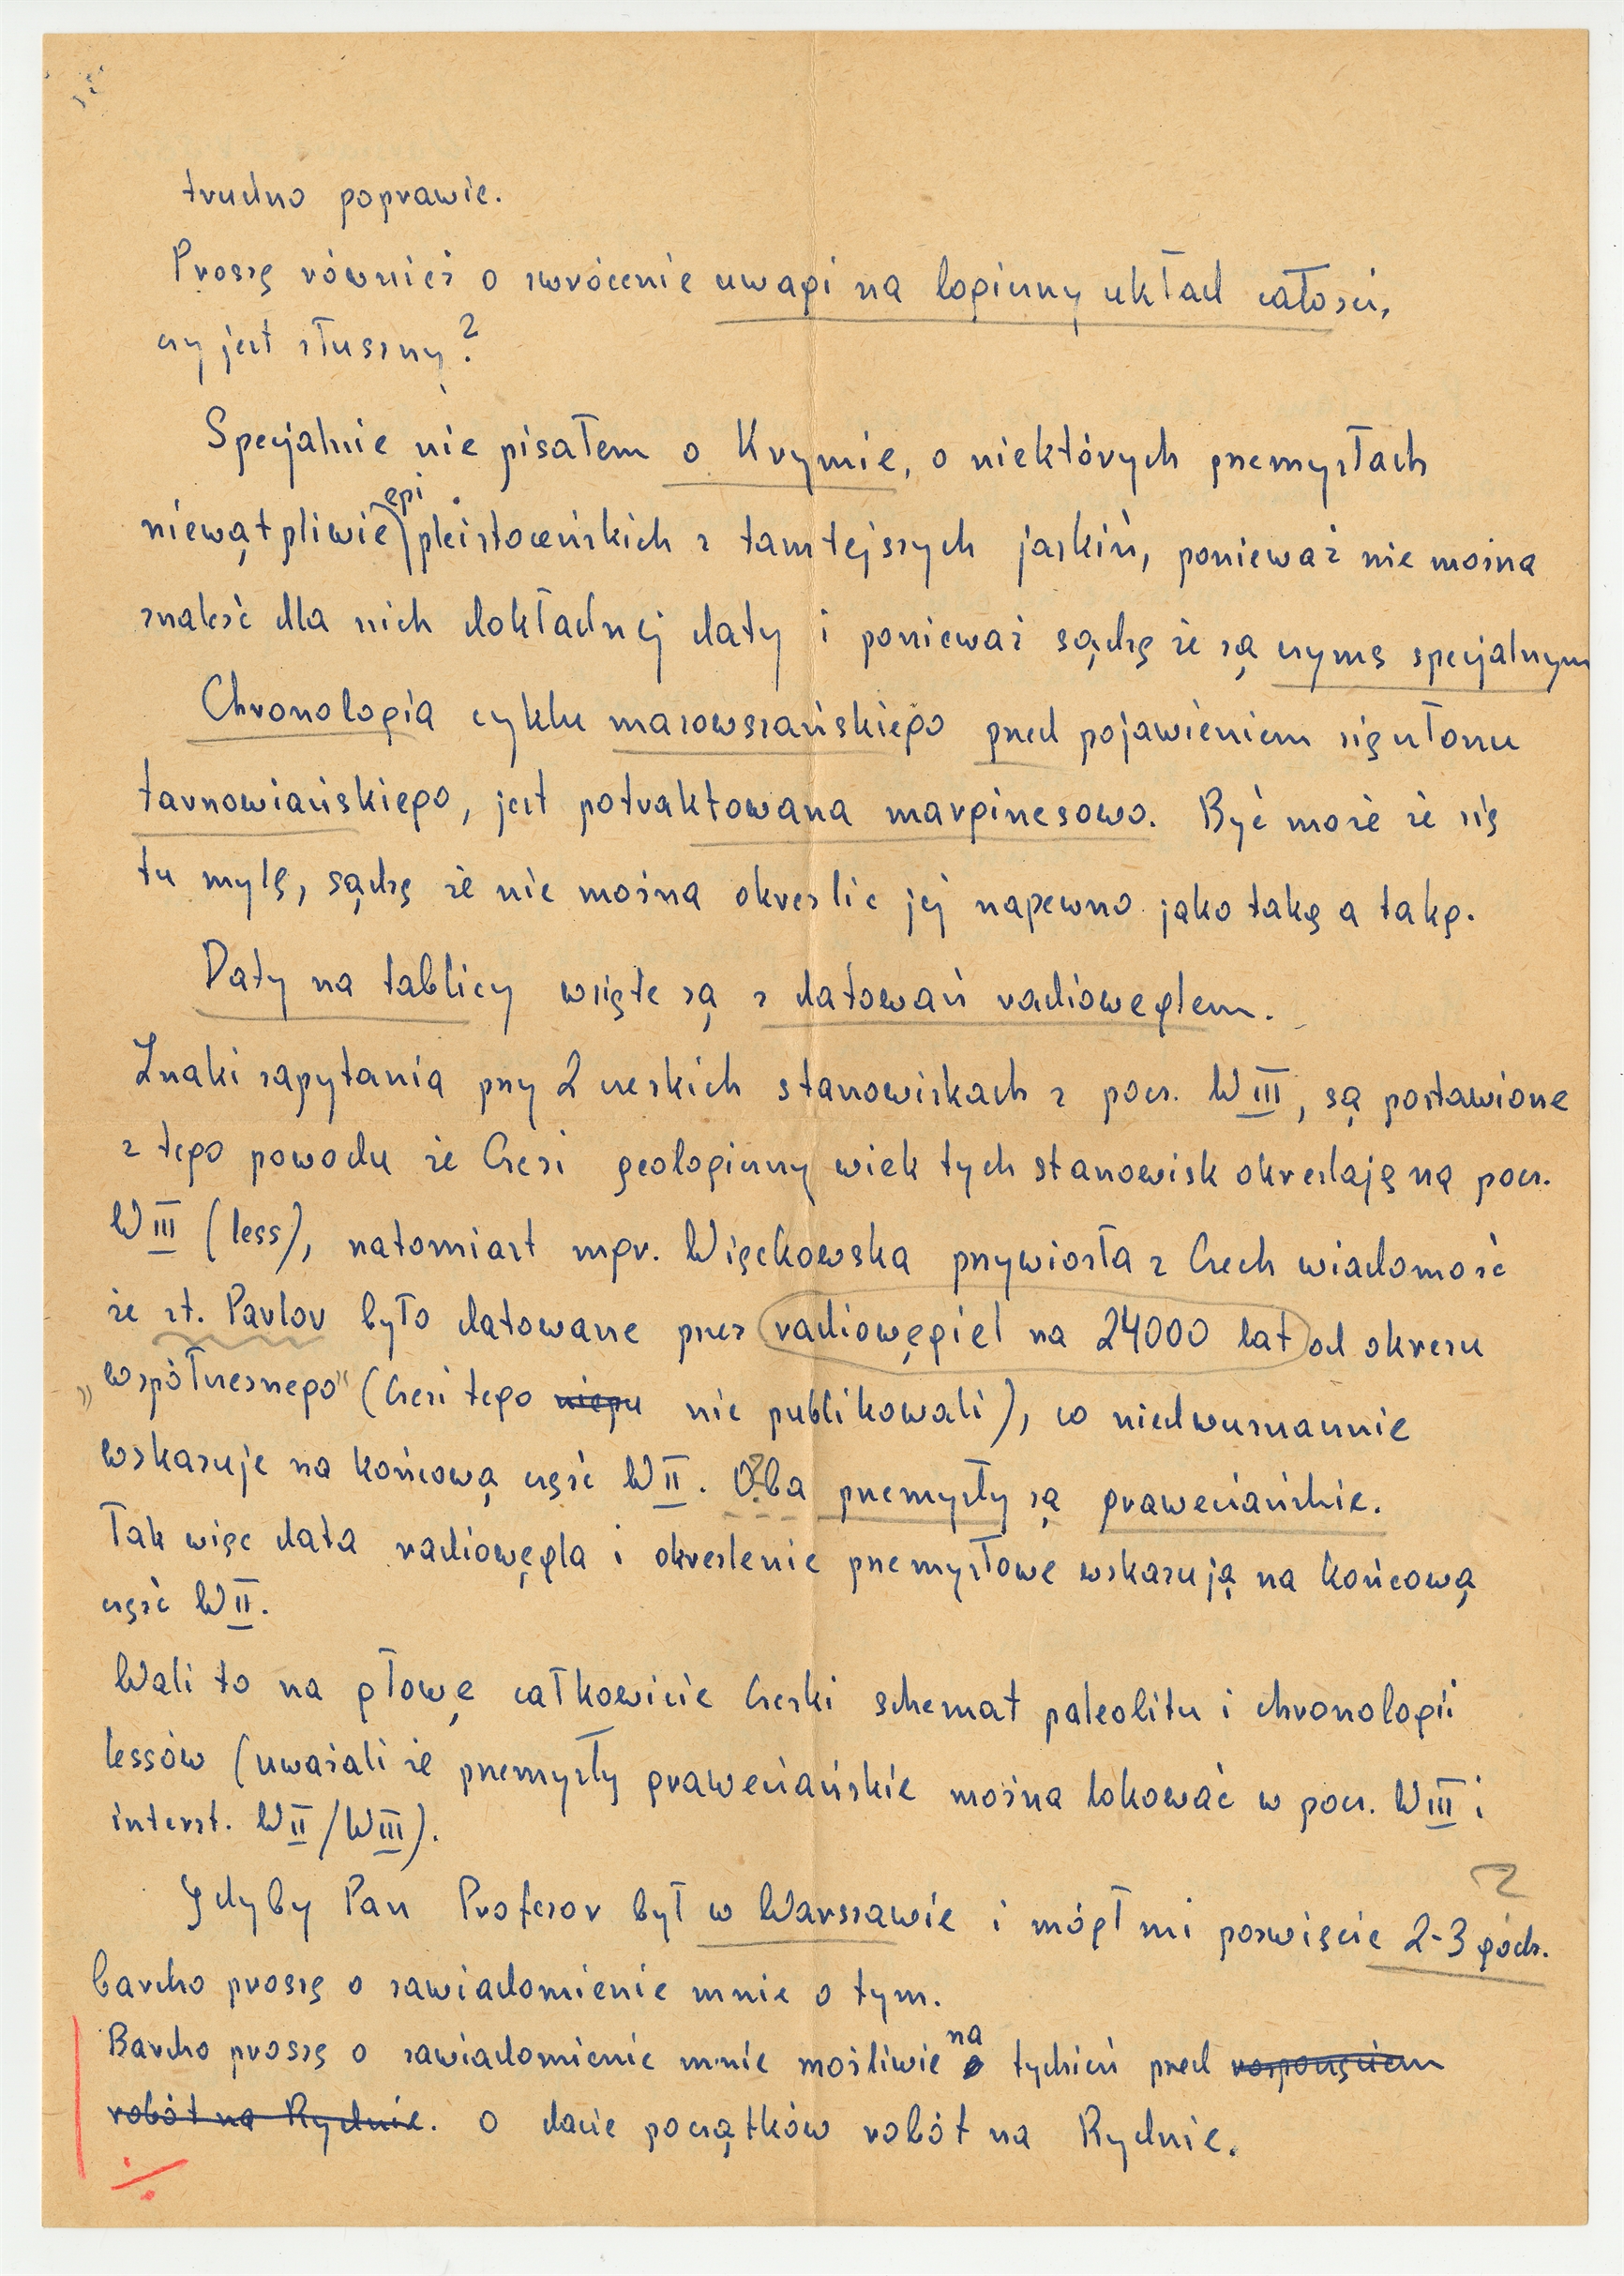 trudno poprawić.
Proszę również o zwrócenie uwagi na logiczny układ całości,
czy jest słuszny?
Specjalnie nie pisałem o Krymie, o niektórych przemysłach
niewątpliwie epi plejstoceńskich z tamtejszych jaskiń, ponieważ nie można
znaleźć dla nich dokładnej daty i ponieważ sądzę że są czymś specjalnym
Chronologia cyklu mazowszańskiego przed pojawieniem się członu
tarnowiańskiego, jest potraktowana marginesowo. Być może że się
tu mylę, sądzę że nie można określić jej napewno jako taką a taką.
Daty na tablicy wzięte są z datowań radiowęglem.
Znaki zapytania przy 2 czeskich stanowiskach z pocz. W III, są postawione
z tego powodu że Czesi geologiczny wiek tych stanowisk określają na pocz.
W III (less), natomiast mgr. Więckowska przywiozła z Czech wiadomość
że st. Pavlov było datowane przez radiowęgiel na 24000 lat od okresu
„współczesnego" (Czesi tego niepu nie publikowali), co niedwuznacznie
wskazuje na końcową część W II. Oba przemysły są graweciańskie.
Tak więc data radiowęgla i określenie przemysłowe wskazują na końcową
część W II.
Wali to na głowę całkowicie Czeski schemat paleolitu i chronologii
lessów (uważali że przemysły graweciańskie można lokować w pocz. W III i
interst. W II / W III).
?
Gdyby Pan Profesor był w Warszawie i mógł mi poświęcić 2-3 godz.
bardzo proszę o zawiadomienie mnie o tym.
Bardzo proszę o zawiadomienie mnie możliwie na tydzień przed rozpoczęciem
robót na Rydnie. o dacie początków robót na Rydnie.